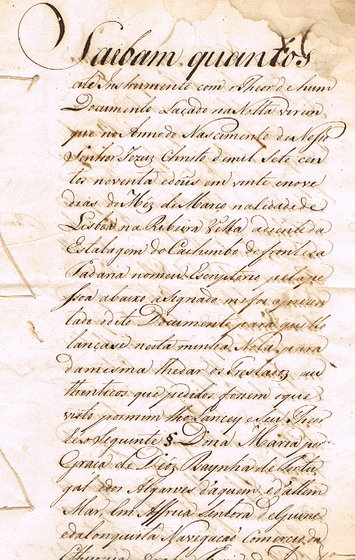 Saibam quantos
este Instrumento com o Theor de hum
Documento Laçado na Notta virem
que no Anno do Nascimento de Nosso
Senhor Jezuz Christo de mil Sete cen
tos noventa e dous em vinte e nove
dias do Mez de Março na Cidade de
Lisboa na Ribeira Velha adiente da
Estalagem do Cachimbo defronte da
Padaria no meu Escriptorio pella pe
ssoa abaixo asignado me foi aprezen
tado o dito Documento para que lho
lançase nesta minha Nota, para
da mesma lhe dar os Treslados au
thenticos que pedidos forem o que
visto por mim lho Lancey e seu Theor
he o Seguinte § Dona Maria por
Graça de Déos Raynha de Portu
gal e dos Algarves daquem, e dallem
Mar, em Affrica Senhora de Guiné
e da Conquista Navegação Comercio da